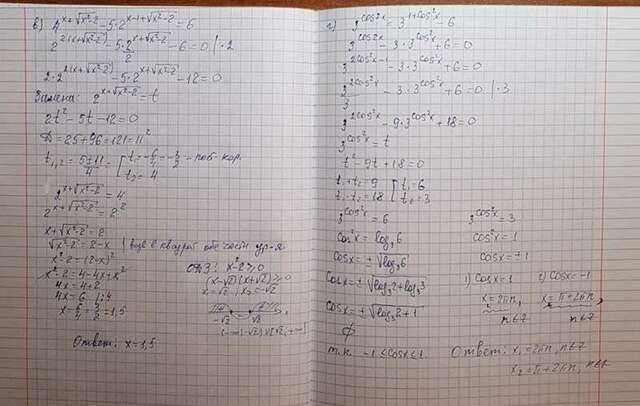 в) 4^{x+√(x²-2)} - 5·2^{x-1+√(x²-2)} - 6
2^{2(x+√(x²-2))} - 5·2^{x+√(x²-2)}/2 - 6 = 0 | ·2
2·2^{2(x+√(x²-2))} - 5·2^{x+√(x²-2)} - 12 = 0
Замена: 2^{x+√(x²-2)} = t
2t² - 5t - 12 = 0
D = 25+96 = 121 = 11²
t₁,₂ = (5±11)/4 = [ t₁ = -6/4 = -3/2 - пост. кор.
t₂ = 4
2^{x+√(x²-2)} = 4
2^{x+√(x²-2)} = 2²
x+√(x²-2) = 2
√(x²-2) = 2-x | в квадрат обе части ур-я
x²-2 = (2-x)²
x²-2 = 4-4x+x²
4x = 4+2
4x = 6 |:4
x = 6/4 = 3/2 = 1,5
ОДЗ: x²-2 ≥ 0
(x-√2)(x+√2) ≥ 0
x₁ = √2, x₂ = -√2
-√2 √2
(-∞;-√2)∪[√2;+∞)
Ответ: x = 1,5
г) 3^{cos2x} - 3^{1+cos²x} - 6
3^{cos2x} - 3·3^{cos²x} + 6 = 0
3^{2cos²x-1} - 3·3^{cos²x} + 6 = 0
3^{2cos²x}/3 - 3·3^{cos²x} + 6 = 0 | ·3
3^{2cos²x} - 9·3^{cos²x} + 18 = 0
3^{cos²x} = t
t² - 9t + 18 = 0
t₁+t₂ = 9
t₁·t₂ = 18 [ t₁ = 6
t₂ = 3
3^{cos²x} = 6
cos²x = log₃6
cosx = ±√(log₃6)
cosx = ±√(log₃2+log₃3)
cosx = ±√(log₃2+1)
∅
т.к. -1 ≤ cosx ≤ 1
3^{cos²x} = 3
cos²x = 1
cosx = ±1
1) cosx = 1
x = 2πn,
n∈Z
2) cosx = -1
x = π+2πn,
n∈Z
Ответ: x₁ = 2πn, n∈Z
x₂ = π+2πn, n∈Z